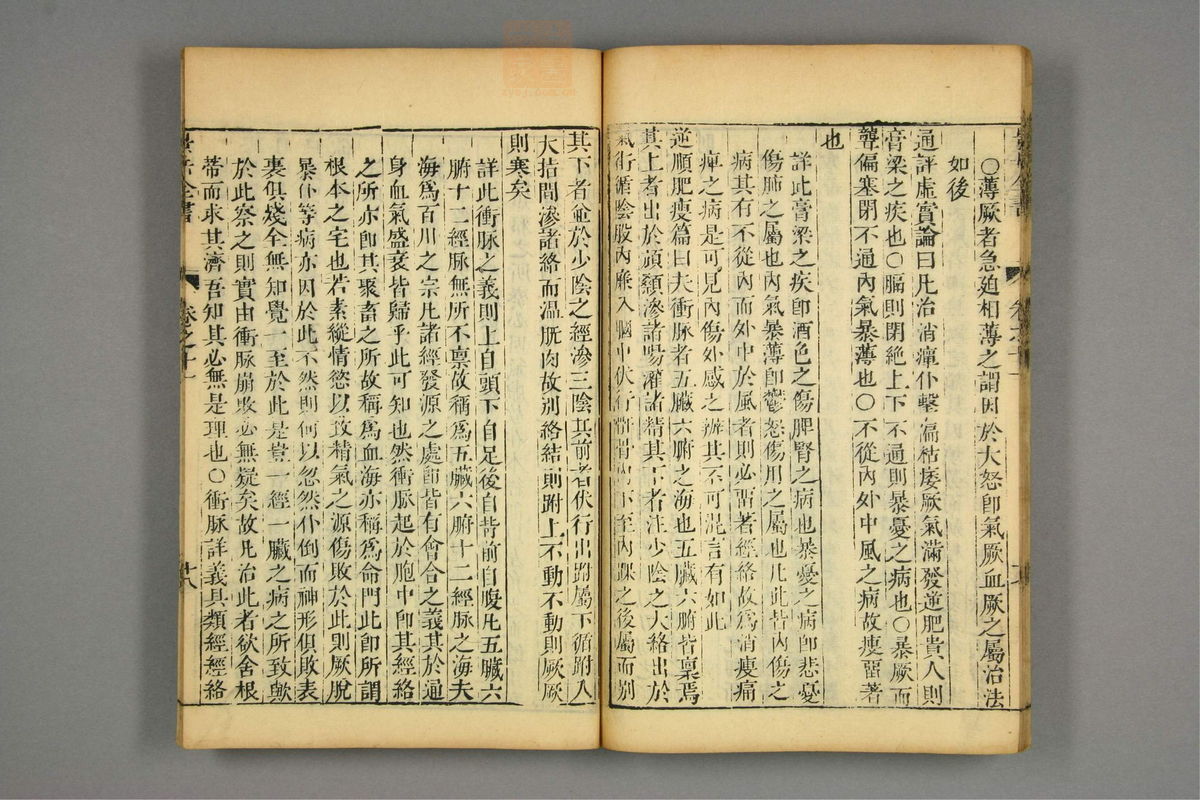 ○薄厥者急廹相薄之謂因於大怒卽氣厥血厥之屬治法
如後
通評虛實論曰凡治消癉仆擊偏枯痿厥氣滿發逆肥貴人則
膏梁之疾也○膈則閉絶上下不通則暴憂之病也○暴厥而
聾偏塞閉不通內氣暴薄也○不從內外中風之病故瘦畱著
也
詳此膏梁之疾卽酒色之傷脾腎之病也暴憂之病卽悲憂
傷肺之屬也內氣暴薄卽鬱怒傷肝之屬也凡此皆內傷之
病其有不從內而外中於風者則必畱著經絡故爲消瘦痛
痺之病是可見內傷外感之辨其不可混言有如此
逆順肥瘦篇曰夫衝脉者五臟六腑之海也五臟六腑皆禀焉
其上者出於頏顙滲諸陽灌諸精其下者注少陰之大絡出於
氣街循陰股內廉入膕中伏行骭骨內下至內踝之後屬而别
其下者並於少陰之經滲三陰其前者伏行出跗屬下循跗入
大指間滲諸絡而温肌肉故别絡結則跗上不動不動則厥厥
則寒矣
詳此衝脉之義則上自頭下自足後自背前自腹凡五臟六
腑十二經脉無所不禀故稱爲五臟六腑十二經脉之海夫
海爲百川之宗凡諸經發源之處卽皆有會合之義其於通
身血氣盛衰皆歸乎此可知也然衝脉起於胞中卽其經絡
之所亦卽其聚畜之所故稱爲血海亦稱爲命門此卽所謂
根本之宅也若素縱情慾以致精氣之源傷敗於此則厥脫
暴仆等病亦因於此不然則何以忽然仆倒而神形俱敗表
裏俱殘全無知覺一至於此是豈一經一臟之病之所致歟
於此察之則實由衝脉崩敗必無疑矣故凡治此者欲舍根
蒂而求其濟吾知其必無是理也○衝脉詳義具類經經絡
景岳全書
卷之十一
廿八